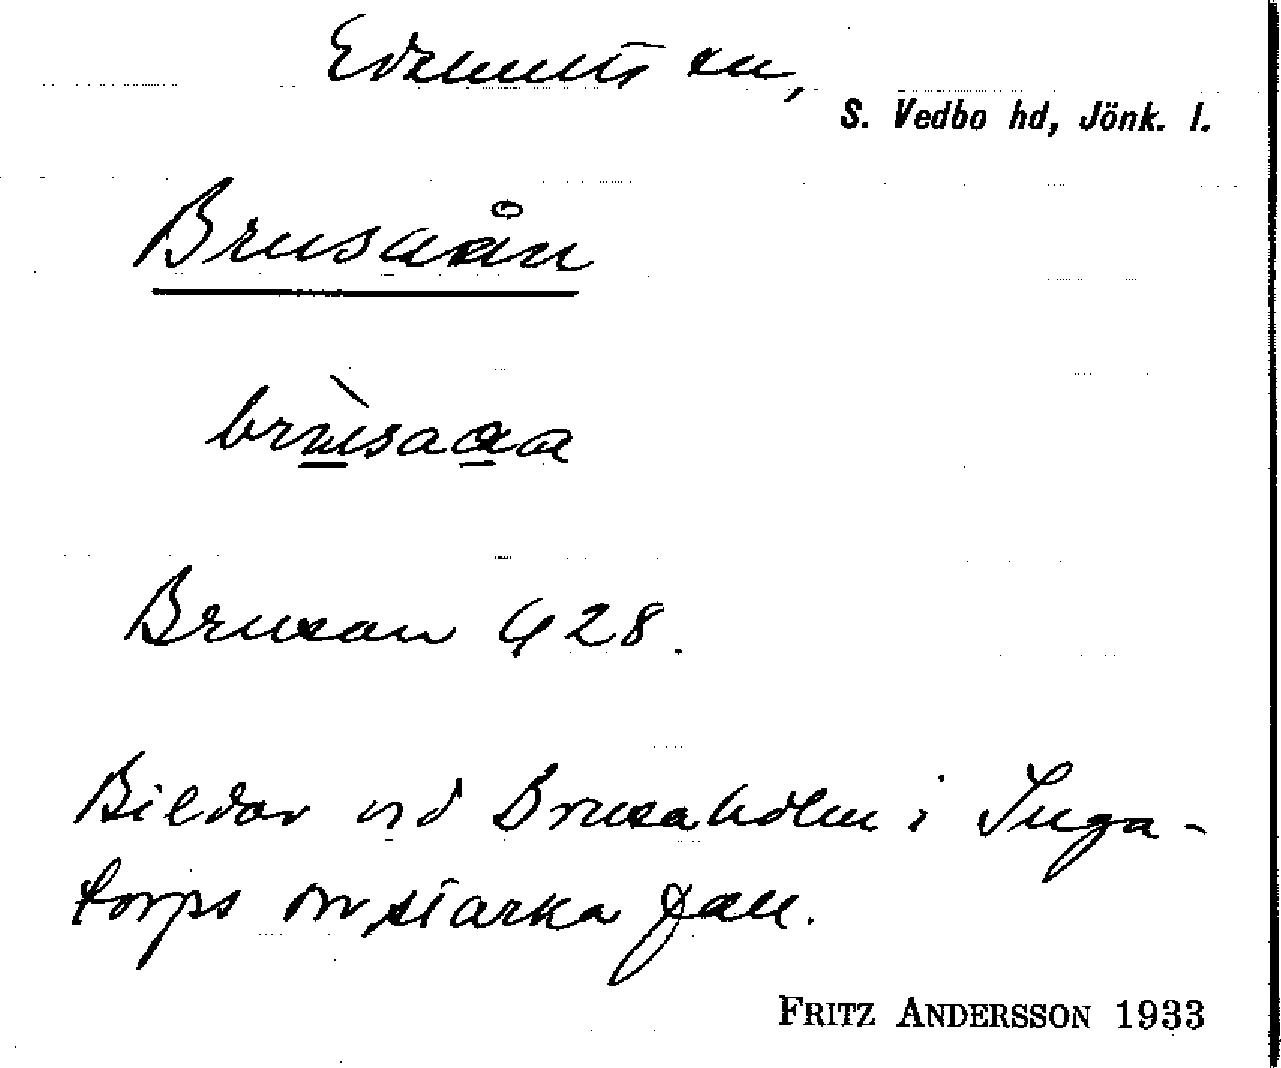 Edshults sn,
S. Vedbo hd, Jönk. l.
Brusaån
brùsaåa
Brusaån G 28.
Bildar vid Brusaholm i Inga-
torps sn starka fall.
FRITZ ANDERSSON 1933